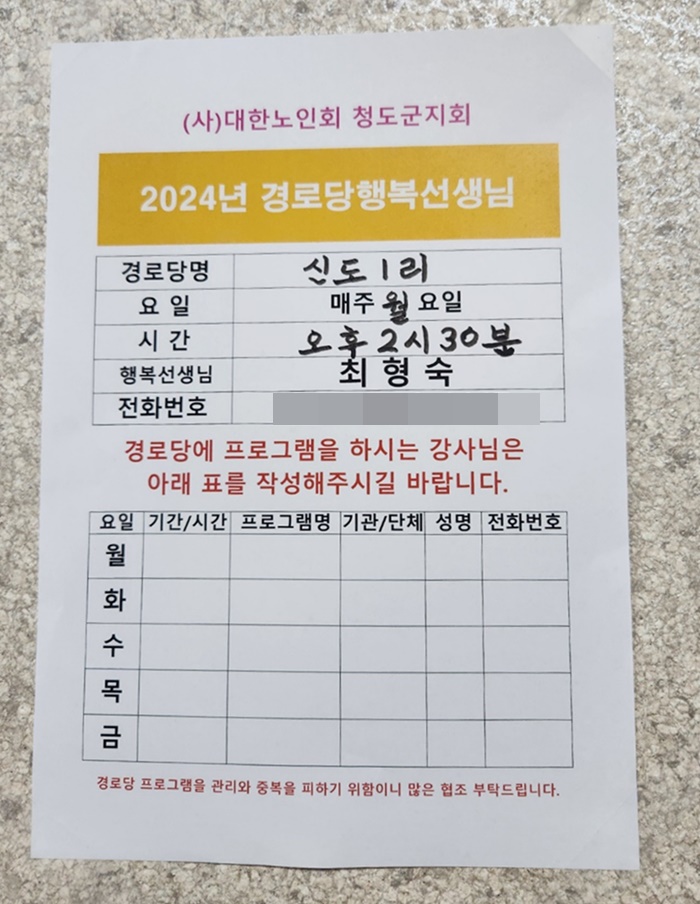 (사)대한노인회 청도군지회
2024년 경로당행복선생님
경로당명 신도1리
요 일 매주 월 요일
시 간 오후 2시 30분
행복선생님 최 형 숙
전화번호
경로당에 프로그램을 하시는 강사님은
아래 표를 작성해주시길 바랍니다.
요일 기간/시간 프로그램명 기관/단체 성명 전화번호
월
화
수
목
금
경로당 프로그램을 관리와 중복을 피하기 위함이니 많은 협조 부탁드립니다.